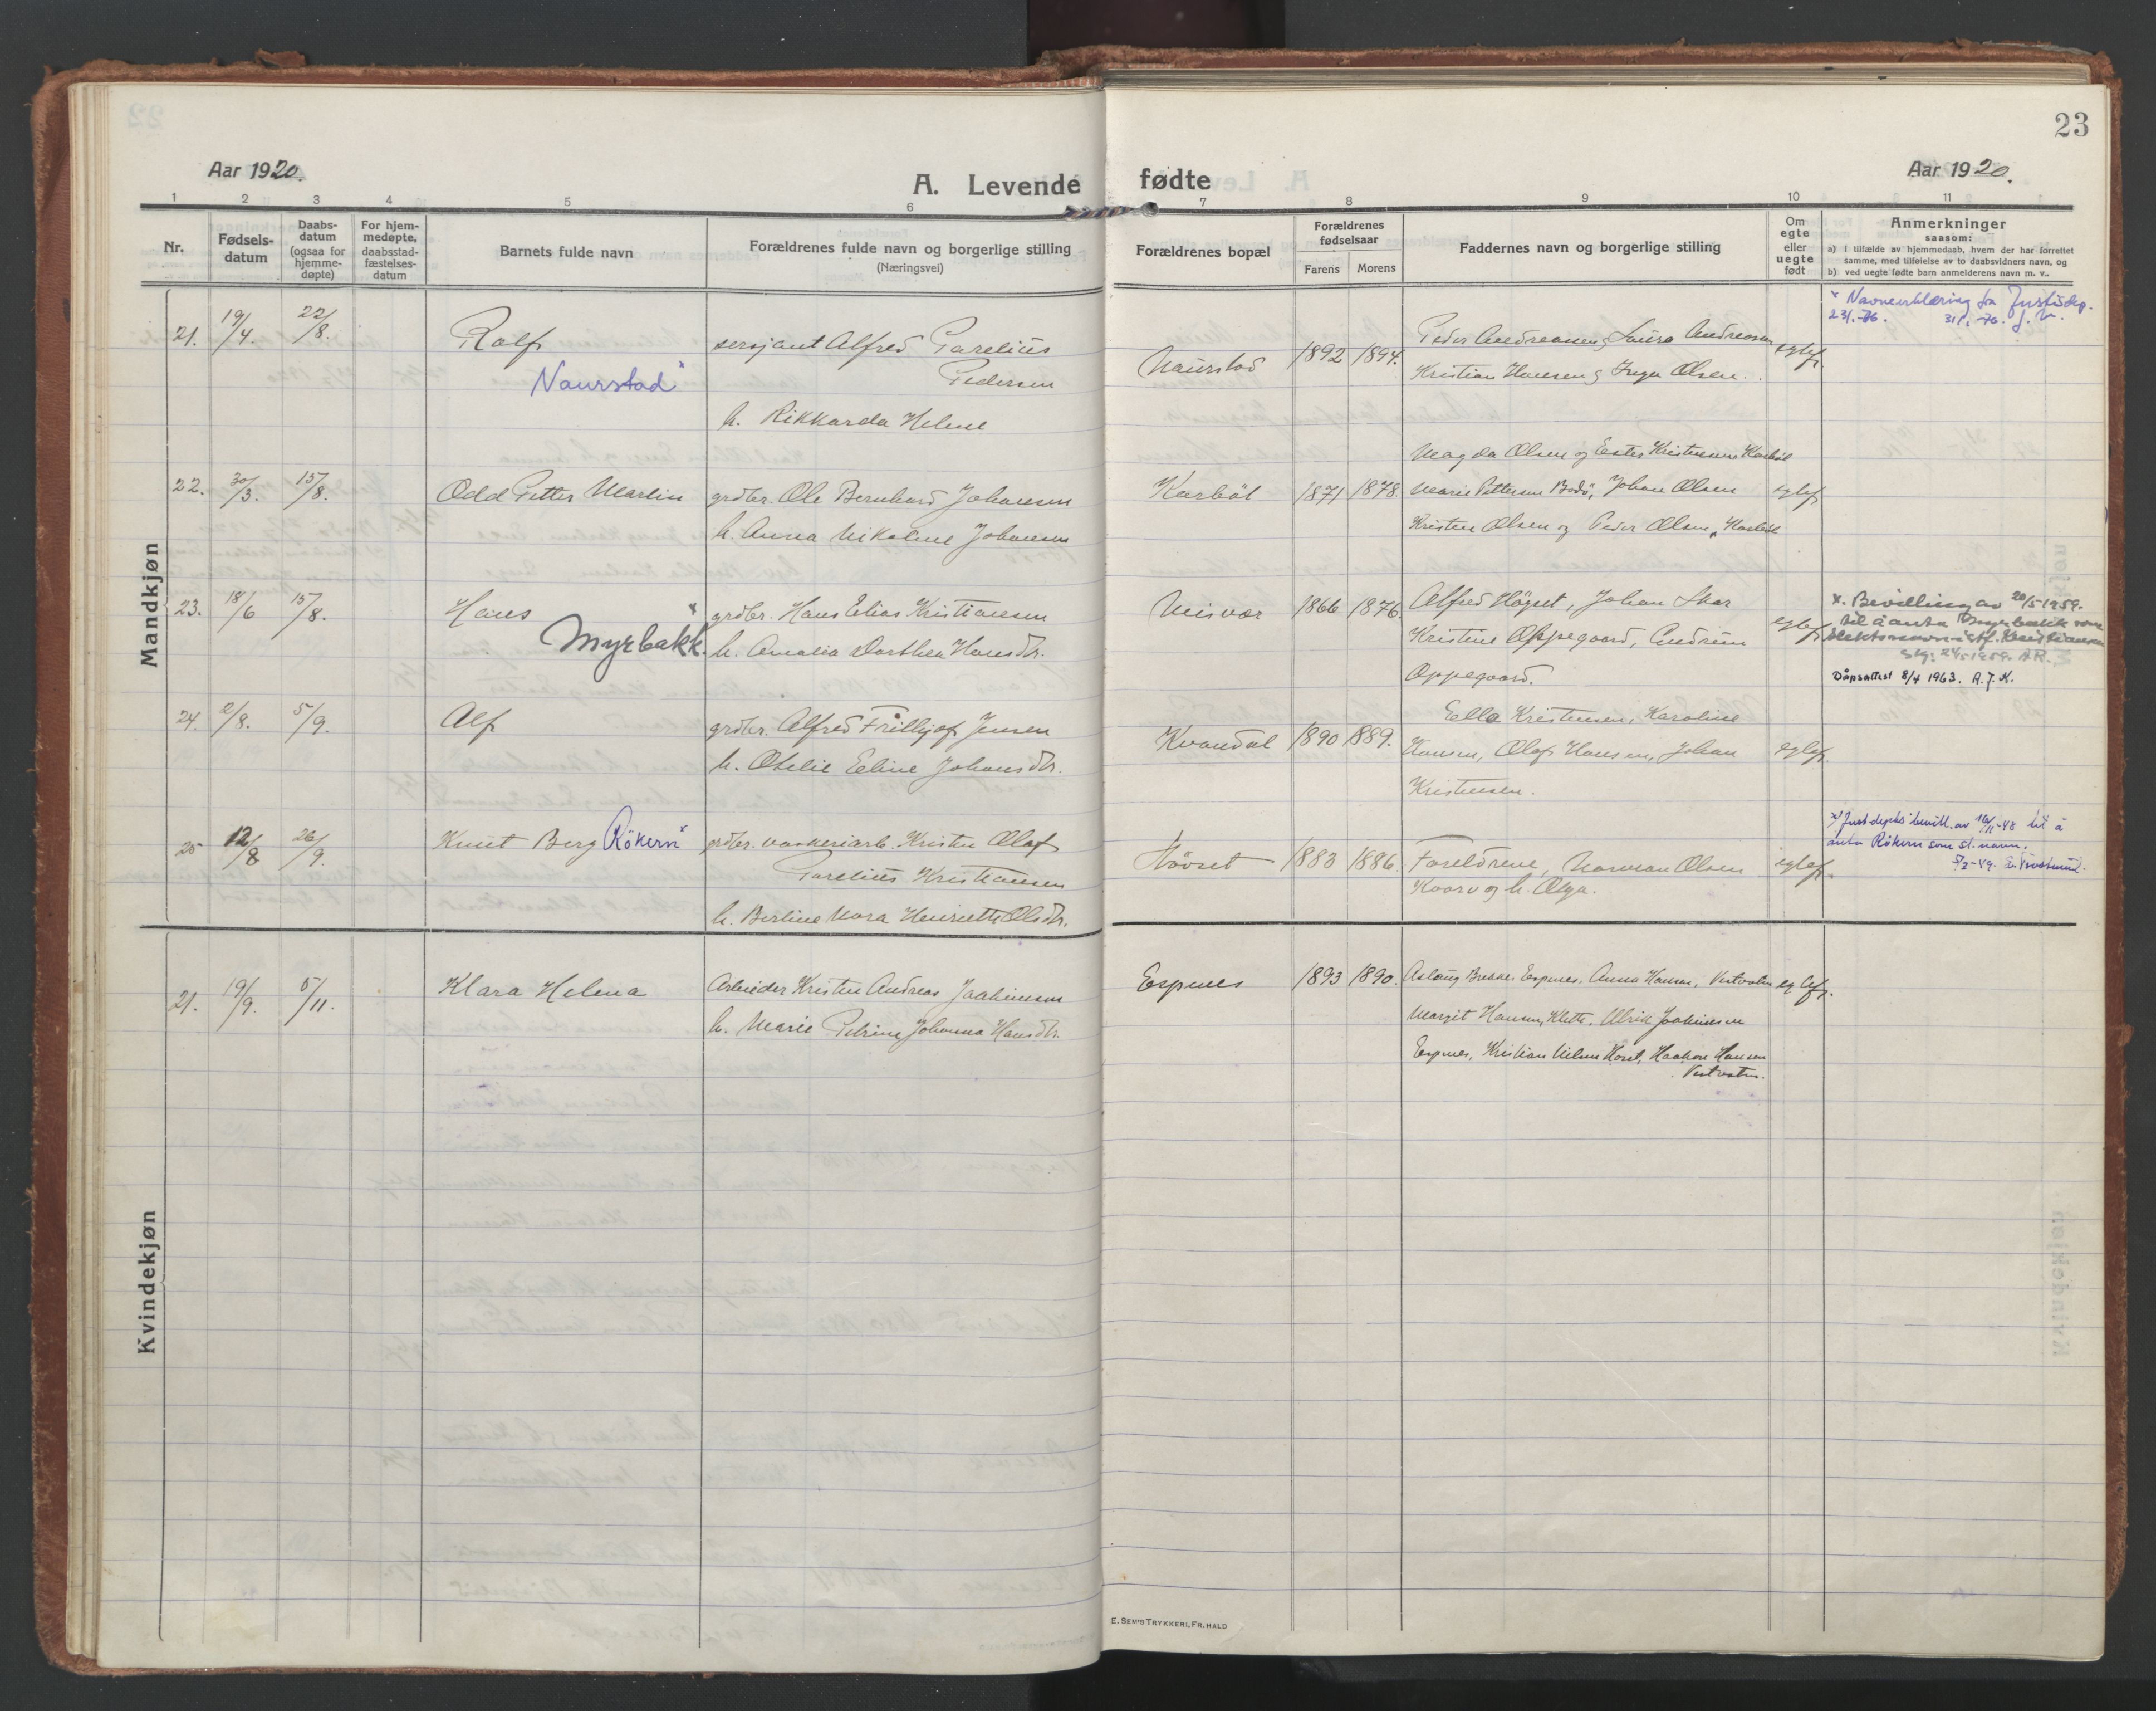 23
Aar 1920.
A. Levende fødte
Aar 1920.
1 2 3 4 5 6 7 8 9 10 11
Nr.
Fødsels-
datum
Daabs-
datum
(ogsaa for
hjemme-
døpte)
For hjem-
medøpte,
daabsstad-
fæstelses-
datum
Barnets fulde navn
Forældrenes fulde navn og borgerlige stilling
(Næringsvei)
Forældrenes bopæl
Forældrenes
fødselsaar
Farens Morens
Faddernes navn og borgerlige stilling
Om
egte
eller
uegte
født
Anmerkninger
saasom:
a) i tilfælde av hjemmedaab, hvem der har forrettet
samme, med tilføielse av to daabsvidners navn, og
b) ved uegte fødte barn anmelderens navn m. v..
Mandkjøn
21. 19/4. 22/8. Rolf
Naurstad x
sersjant Alfred Parelius
Pedersen
h. Rikkarda Helene
Naurstad 1892 1894.
Peder Andreassen, Laura Andreassen
Kristian Hansen og Inga Olsen.
egtef.
x Navneerklæring fra Justisdep.
23/1.-76. 31/1.-76.
22. 30/3. 15/8. Odd Petter Martin
grdbr. Ole Bernhard Johansen
h. Anna Nikoline Johansen
Karbøl 1871 1878.
Magda Olsen og Ester Kristensen Karbøl
Marie Pettersen Bodø, Johan Olsen
Kristen Olsen og Peder Olsen, Karbøl
egtef.
23. 18/6 15/8. Hans x
Myrbakk.
grdbr. Hans Elias Kristiansen
h. Amalia Dorthea Hansdtr.
Misvær 1866 1876.
Alfred Høgset, Johan Skar
Kristine Oppegaard, Andrine
Oppegaard.
egtef.
x. Bevilling av 20/5 1959.
til å anta Myrbakk som
slektsnavn istf. Kristiansen
24/5 1959. A.R.
Dåpsattest 8/4 1963. A.J.K.
24. 2/8. 5/9. Alf
grdbr. Alfred Fritthjof Jensen
h. Otelie Eline Johansdtr.
Kvandal 1890 1889.
Ella Kristensen, Karoline
Hansen, Olaf Hansen, Johan
Kristensen.
egtef.
25 12/8 26/9. Knut Berg Røkern x
grdbr. vaskeriarb. Kristen Olaf
Parelius Kristiansen
h. Berline Nora Henriette Olsdtr.
Høvset 1883 1886.
Foreldrene, Norman Olsen
Kvarv og h. Olga.
egtef.
x) Just.depts bevill. av 16/11-48 til å
anta Røkern som sl.navn.
5/2-49.
Kvindekjøn
21. 19/9. 5/11. Klara Helena
Arbeider Kristen Andreas Joakimsen
h. Marie Petrine Johanna Hansdtr.
Espnes 1893 1890.
Aslaug Brekke. Espnes, Anna Hansen, Vestvatn
Margit Hansen, Klette, Ulrik Joakimsen
Espnes, Kristian Nilsen Horet, Haakon Hansen
Vestvatn.
egtef.
E. SEM'S TRYKKERI, FR. HALD